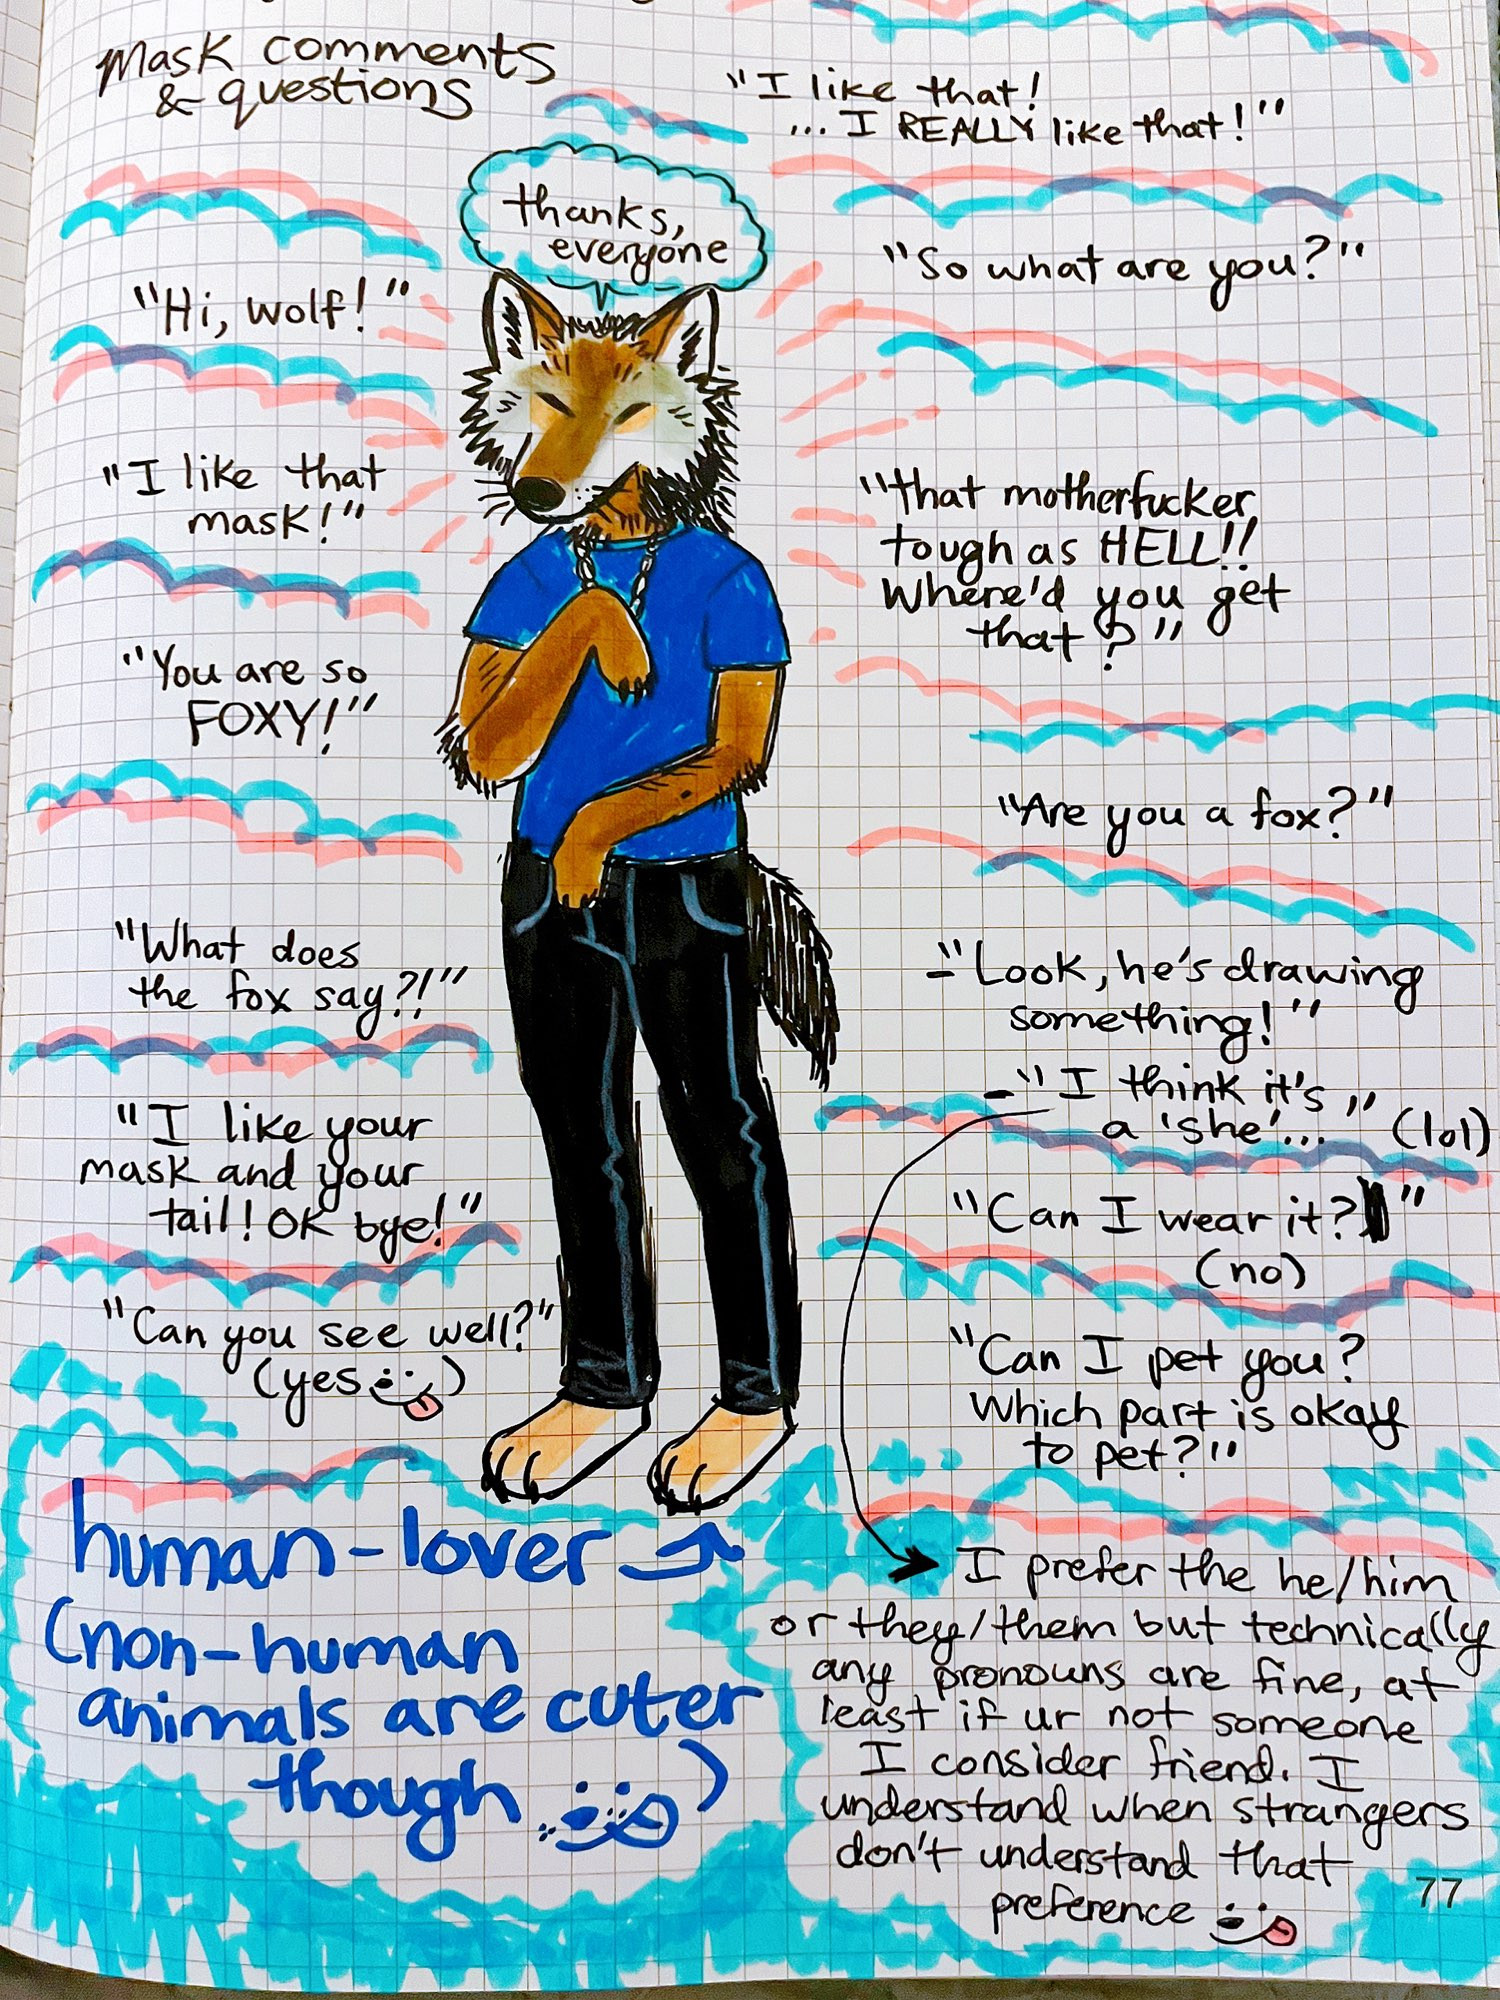 Mask comments
& questions
"I like that!
... I REALLY like that!"
thanks,
everyone
"Hi, wolf!"
"So what are you?"
"I like that
mask!"
"that motherfucker
tough as HELL!!
Where'd you get
that?"
"You are so
FOXY!"
"Are you a fox?"
"What does
the fox say?!"
- "Look, he's drawing
something!"
- "I think it's
a 'she'..." (lol)
"I like your
mask and your
tail! OK bye!"
"Can I wear it?"
(no)
"Can you see well?"
(yes)
"Can I pet you?
Which part is okay
to pet?"
human-lover
(non-human
animals are cuter
though )
I prefer the he/him
or they/them but technically
any pronouns are fine, at
least if ur not someone
I consider friend. I
understand when strangers
don't understand that
preference
77